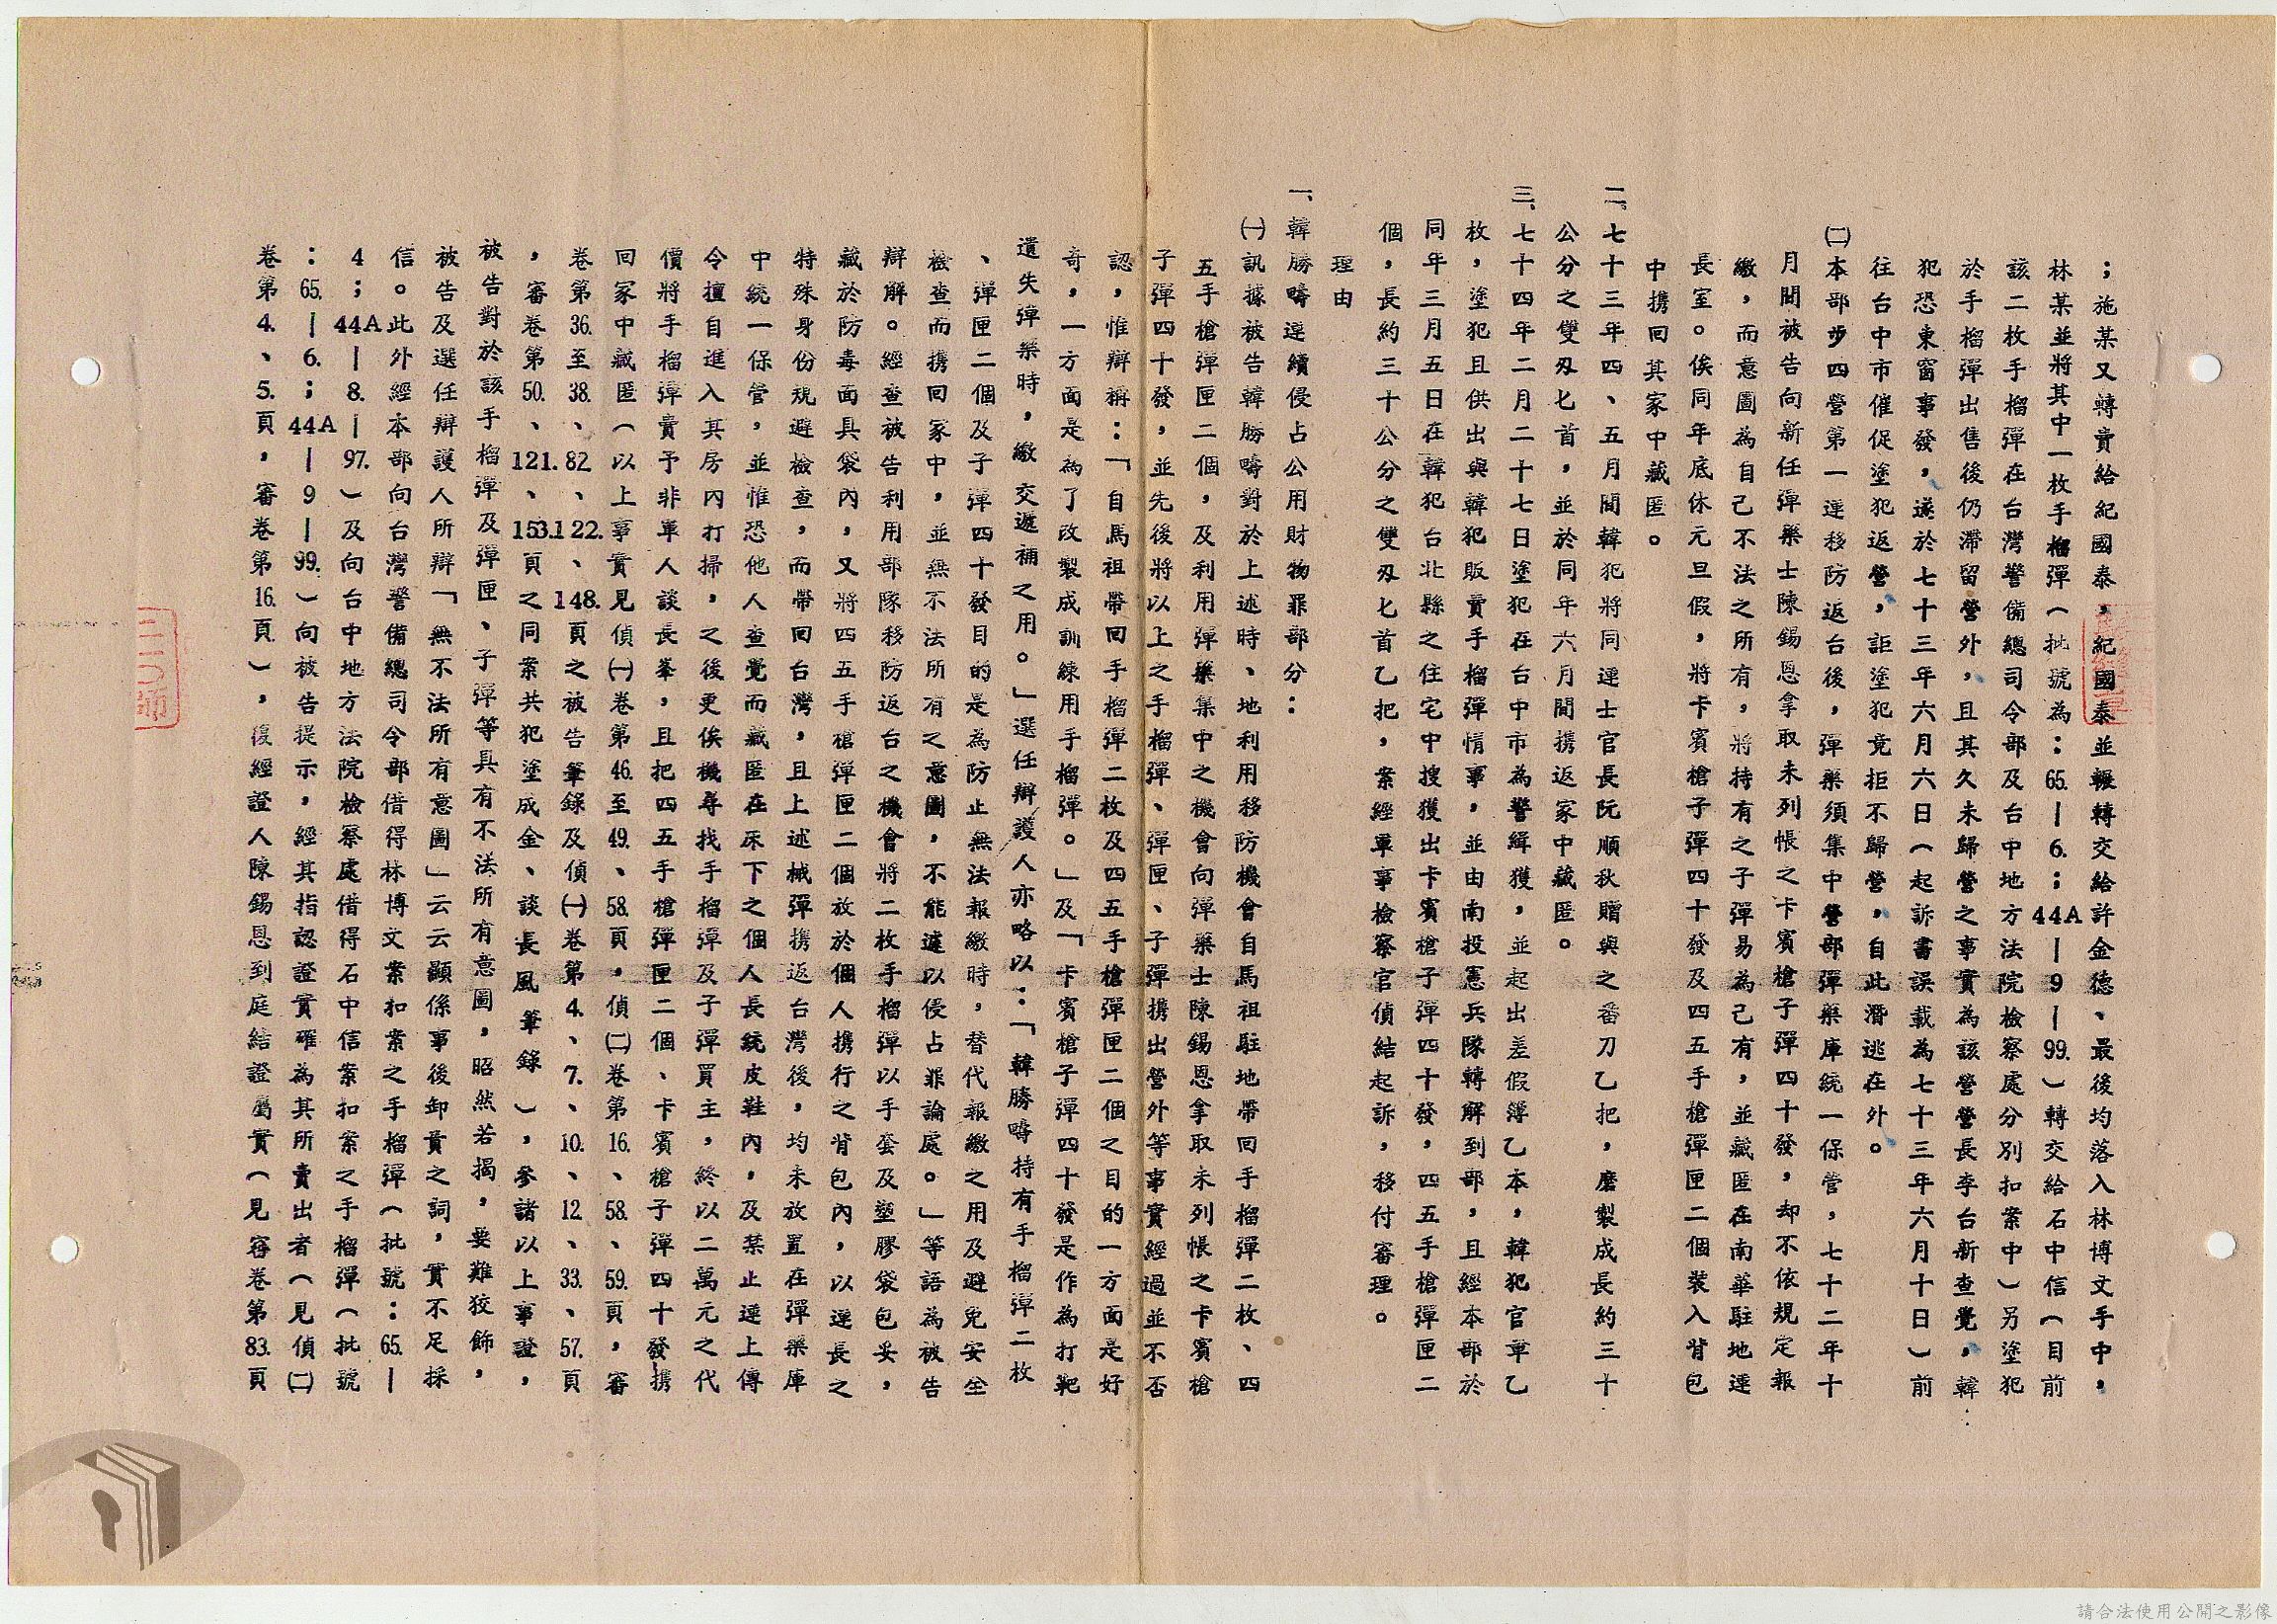 ；施某又轉賣給紀國泰，紀國泰並輾轉交給許金德、最後均落入林博文手中，
林某並將其中一枚手榴彈（批號為：65.—6.；44A—9—99.）轉交給石中信（目前
該二枚手榴彈在台灣警備總司令部及台中地方法院檢察處分別扣案中）另塗犯
於手榴彈出售後仍滯留營外，且其久未歸營之事實為該營營長李台新查覺，韓
犯恐東窗事發，遂於七十三年六月六日（起訴書誤載為七十三年六月十日）前
往台中市催促塗犯返營，詎塗犯竟拒不歸營，自此潛逃在外。
㈡本部步四營第一連移防返台後，彈藥須集中營部彈藥庫統一保管，七十二年十
月間被告向新任彈藥士陳錫恩拿取未列帳之卡賓槍子彈四十發，却不依規定報
繳，而意圖為自己不法之所有，將持有之子彈易為己有，並藏匿在南華駐地連
長室。俟同年底休元旦假，將卡賓槍子彈四十發及四五手槍彈匣二個裝入背包
中携回其家中藏匿。
二、七十三年四、五月間韓犯將同連士官長阮順秋贈與之番刀乙把，磨製成長約三十
公分之雙刄匕首，並於同年六月間携返家中藏匿。
三、七十四年二月二十七日塗犯在台中市為警緝獲，並起出差假簿乙本，韓犯官章乙
枚，塗犯且供出與韓犯販賣手榴彈情事，並由南投憲兵隊轉解到部，且經本部於
同年三月五日在韓犯台北縣之住宅中搜獲出卡賓槍子彈四十發，四五手槍彈匣二
個，長約三十公分之雙刄匕首乙把，案經軍事檢察官偵結起訴，移付審理。
理由
一、韓勝疇連續侵占公用財物罪部分：
㈠訊據被告韓勝疇對於上述時、地利用移防機會自馬祖駐地帶回手榴彈二枚、四
五手槍彈匣二個，及利用彈藥集中之機會向彈藥士陳錫恩拿取未列帳之卡賓槍
子彈四十發，並先後將以上之手榴彈、彈匣、子彈携出營外等事實經過並不否
認，惟辯稱：「自馬祖帶回手榴彈二枚及四五手槍彈匣二個之目的一方面是好
奇，一方面是為了改製成訓練用手榴彈。」及「卡賓槍子彈四十發是作為打靶
遺失彈藥時，繳交遞補之用。」選任辯護人亦略以：「韓勝疇持有手榴彈二枚
、彈匣二個及子彈四十發目的是為防止無法報繳時，替代報繳之用及避免安全
檢查而携回家中，並無不法所有之意圖，不能遽以侵占罪論處。」等語為被告
辯解。經查被告利用部隊移防返台之機會將二枚手榴彈以手套及塑膠袋包妥，
藏於防毒面具袋內，又將四五手槍彈匣二個放於個人携行之背包內，以連長之
特殊身份規避檢查，而帶回台灣，且上述械彈携返台灣後，均未放置在彈藥庫
中統一保管，並惟恐他人查覺而藏匿在床下之個人長統皮鞋內，及禁止連上傳
令擅自進入其房內打掃，之後更俟機尋找手榴彈及子彈買主，終以二萬元之代
價將手榴彈賣予非軍人談長峯，且把四五手槍彈匣二個、卡賓槍子彈四十發携
回家中藏匿（以上事實見偵㈠卷第46.至49.、58.頁，偵㈡卷第16.、58.、59.頁，審
卷第36.至38.、82.、122.、148.頁之被告筆錄及偵㈠卷第4.、7.、10.、12.、33.、57.頁
，審卷第50.、121.、153.頁之同案共犯塗成金、談長風筆錄），參諸以上事證，
被告對於該手榴彈及彈匣、子彈等具有不法所有意圖，昭然若揭，要難狡飾，
被告及選任辯護人所辯「無不法所有意圖」云云顯係事後卸責之詞，實不足採
信。此外經本部向台灣警備總司令部借得林博文案扣案之手榴彈（批號：65.—
4；44A—8.—97.）及向台中地方法院檢察處借得石中信案扣案之手榴彈（批號
：65.—6.；44A—9—99.）向被告提示，經其指認證實確為其所賣出者（見偵㈡
卷第4.、5.頁，審卷第16.頁），復經證人陳錫恩到庭結證屬實（見審卷第83.頁
請合法使用公開之影像